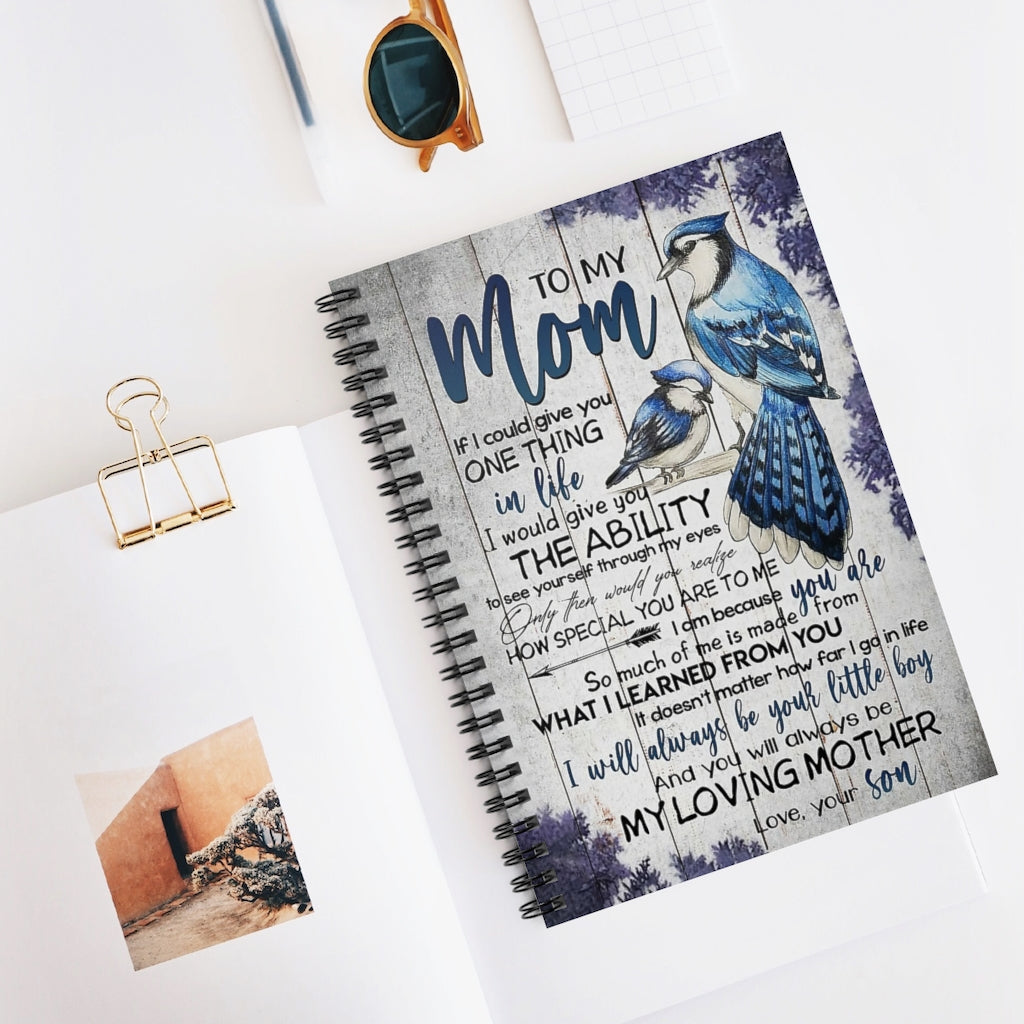 TO MY
Mom
If I could give you
ONE THING
in life
I would give you
THE ABILITY
to see yourself through my eyes
Only then would you realize
HOW SPECIAL YOU ARE TO ME
I am because you are
So much of me is made from
WHAT I LEARNED FROM YOU
It doesn't matter how far I go in life
I will always be your little boy
And you will always be:
MY LOVING MOTHER
Love, your son